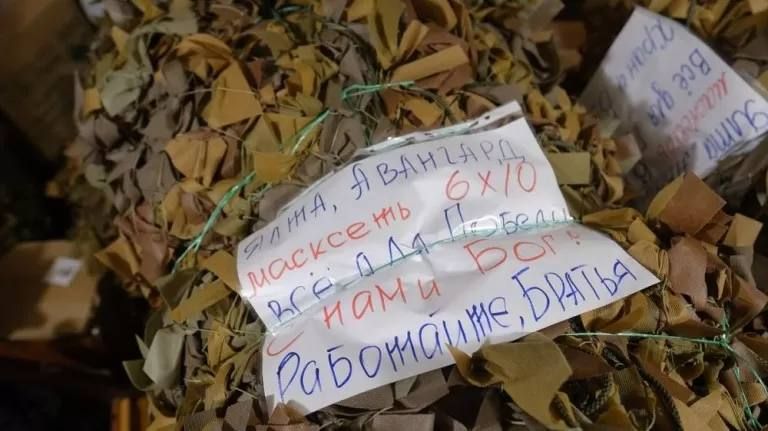 ЯЛТА, АВАНГАРД
масксеть 6х10
всё для Победы
С нами Бог!
Работайте, Братья
Ялта
масксеть 6
Всё для